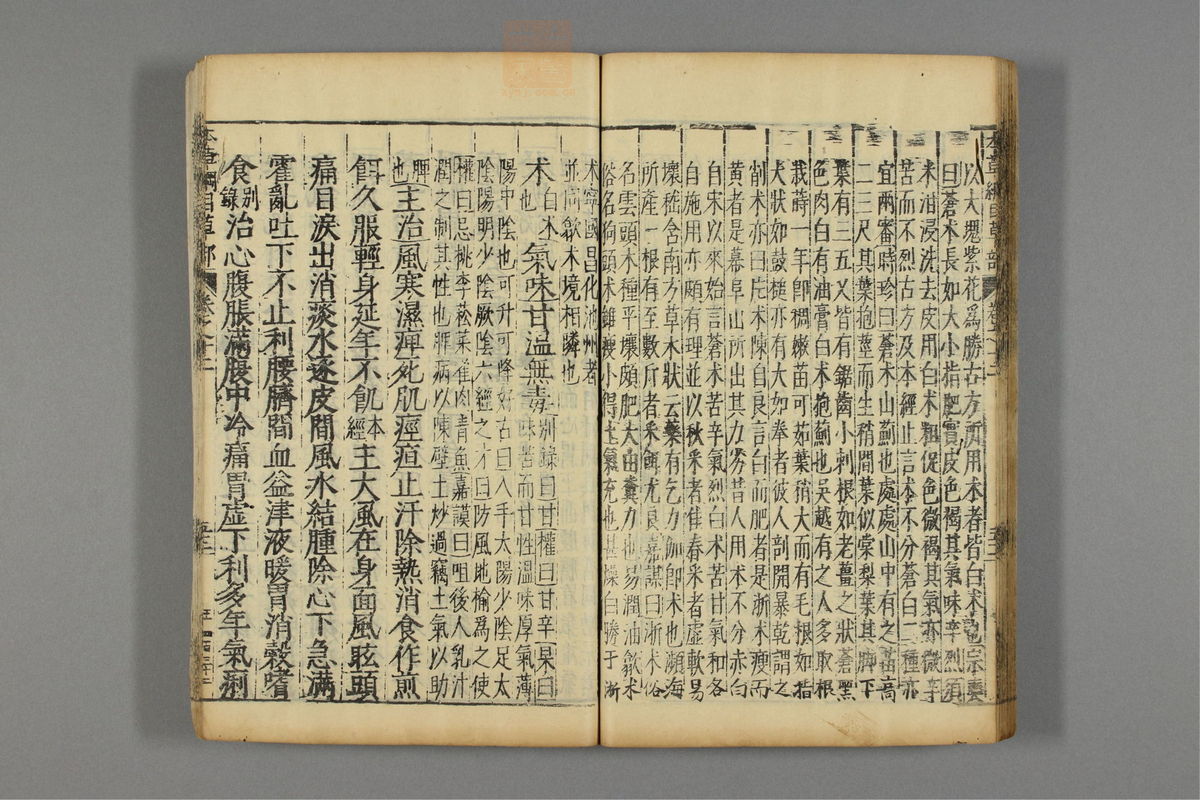 以大塊紫花爲勝古方所用术者皆白术也宗奭
曰蒼术長如大小指肥實皮色褐其氣味辛烈須
米泔浸洗去皮用白术粗促色微褐其氣亦微辛
苦而不烈古方及本經止言术不分蒼白二種亦
宜兩審時珍曰蒼术山薊也處處山中有之苗高
二三尺其葉抱莖而生稍間葉似棠梨葉其脚下
葉有三五叉皆有鋸齒小刺根如老薑之狀蒼黑
色肉白有油膏白术抱薊也吳越有之人多取根
栽蒔一年即稠嫩苗可茹葉稍大而有毛根如指
大狀如鼓槌亦有大如拳者彼人剖開暴乾謂之
削术亦曰片术陳自良言白而肥者是浙术瘦而
黄者是幕阜山所出其力劣昔人用术不分赤白
自宋以來始言蒼术苦辛氣烈白术苦甘氣和各
自施用亦頗有理並以秋采者佳春采者虚軟易
壞嵇含南方草木狀云藥有乞力伽即术也瀕海
所產一根有至數斤者采餌尤良嘉謨曰浙术俗
名雲頭术種平壤頗肥大由糞力也易潤油歙术
俗名狗頭术雖瘦小得土氣充也甚燥白勝于浙
术寧國昌化池州者
並同歙术境相隣也
术白术也氣味甘温無毒别錄曰甘權曰甘辛杲曰
味苦而甘性温味厚氣薄
陽中陰也可升可降好古曰入手太陽少陰足太
陰陽明少陰厥陰六經之才曰防風地榆爲之使
權曰忌桃李菘菜雀肉青魚嘉謨曰咀後人乳汁
潤之制其性也脾病以陳壁土炒過竊土氣以助
脾也主治風寒濕痺死肌痙疸止汗除熱消食作煎
餌久服輕身延年不飢本經主大風在身面風眩頭
痛目淚出消痰水逐皮間風水結腫除心下急滿
霍亂吐下不止利腰臍間血益津液暖胃消穀嗜
食别錄治心腹脹滿腹中冷痛胃虚下利多年氣痢